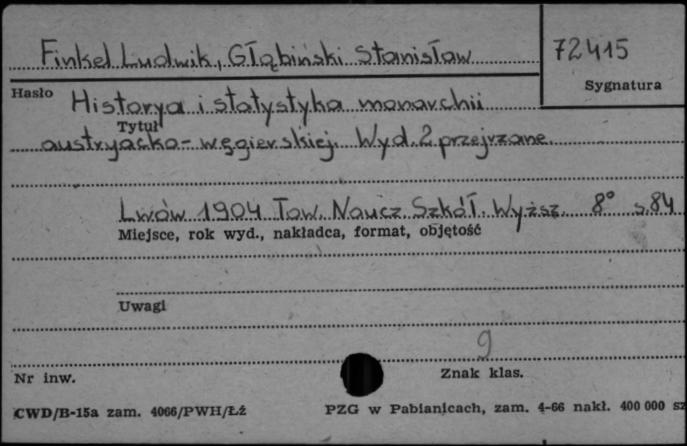 Finkel Ludwik, Głąbiński Stanisław
72415
Hasło
Sygnatura
Historya i statystyka monarchii
Tytuł
austryacko-węgierskiej. Wyd. 2 przejrzane
Lwów 1904 Tow. Naucz Szkół. Wyższ. 8° s. 84
Miejsce, rok wyd., nakładca, format, objętość
Uwagi
9
Nr inw.
Znak klas.
CWD/B-15a zam. 4066/PWH/Łź
PZG w Pabianicach, zam. 4-66 nakł. 400 000 sz